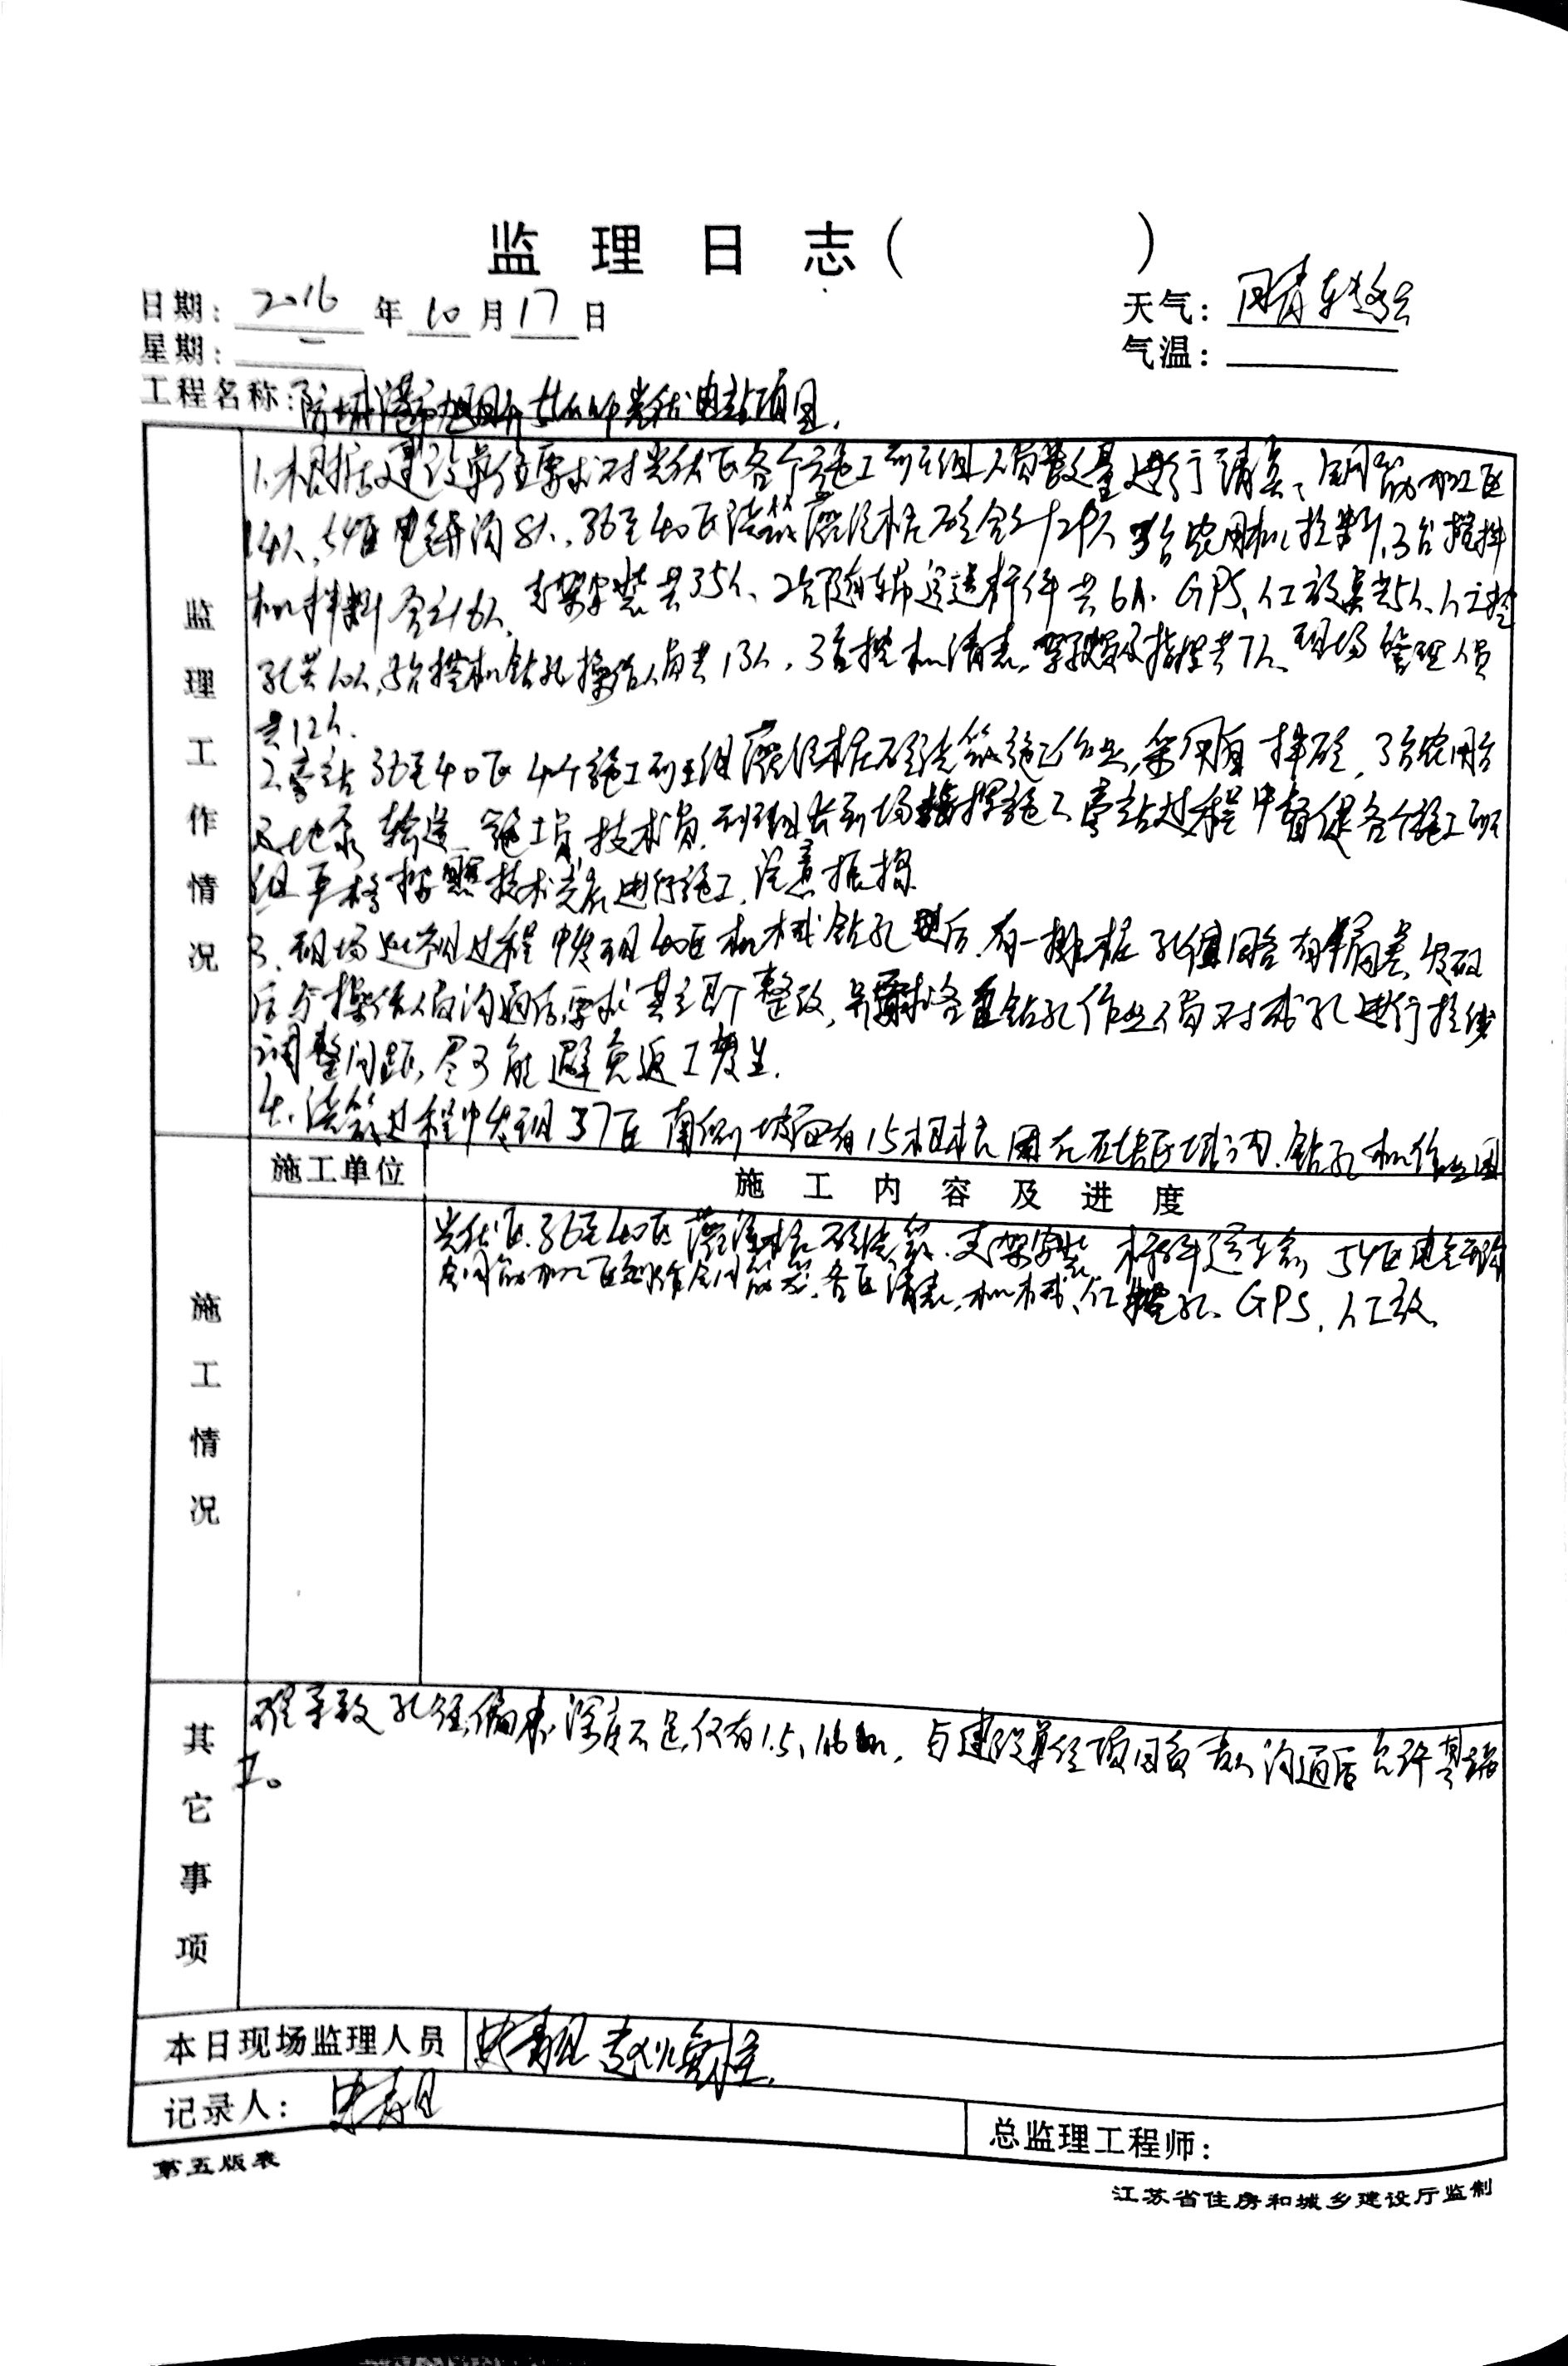 监理日志( )
日期: 2016 年 10 月 17 日
天气: 阴转
星期: 一
气温:
工程名称: 防城港市 光伏电站项目.
监理工作情况
1.根据建设单位要求对光伏区各个施工班组人员数量进行清点、钢筋加工区
14人,54区电缆沟8人,36至40区浇筑灌注桩砼 农用机拉料,3台搅拌
机拌料 支架安装共35人、 杆件共6人、GPS、人工放点共5人、人工挖
孔共10人,5台挖机钻孔操作人员共13人,3台挖机清表, 指挥共7人、现场管理人员
共12人.
2.旁站36至40区4个施工班组灌注桩砼浇筑施工作业,采用自拌砼,3台农用车
及地泵输送,施工员,技术员.班组长到场指挥施工旁站过程中督促各个施工班
组严格按照技术交底进行施工,注意振捣.
3.现场巡视过程中发现40区机械钻孔 后.有一排桩孔位 有偏差,发现
后与操作人员沟通后,要求其立即整改,并要求各 钻孔作业人员对 孔进行拉线
调整间距,尽可能避免返工发生.
4.浇筑过程中发现37区南侧坡面有15根桩 因在 区域内.钻孔机作业困
施工单位
施工内容及进度
施工情况
光伏区.36至40区灌注桩砼浇筑.支架安装 杆件运输 54区电缆
钢筋加工区制作钢筋笼.各区清表,机械、人工挖孔、GPS,人工放
其它事项
难导致孔径偏 深度不足,仅有1.5、1.6m,与建设单位项目负责人沟通后允许其施
工。
本日现场监理人员
记录人:
总监理工程师:
第五版表
江苏省住房和城乡建设厅监制